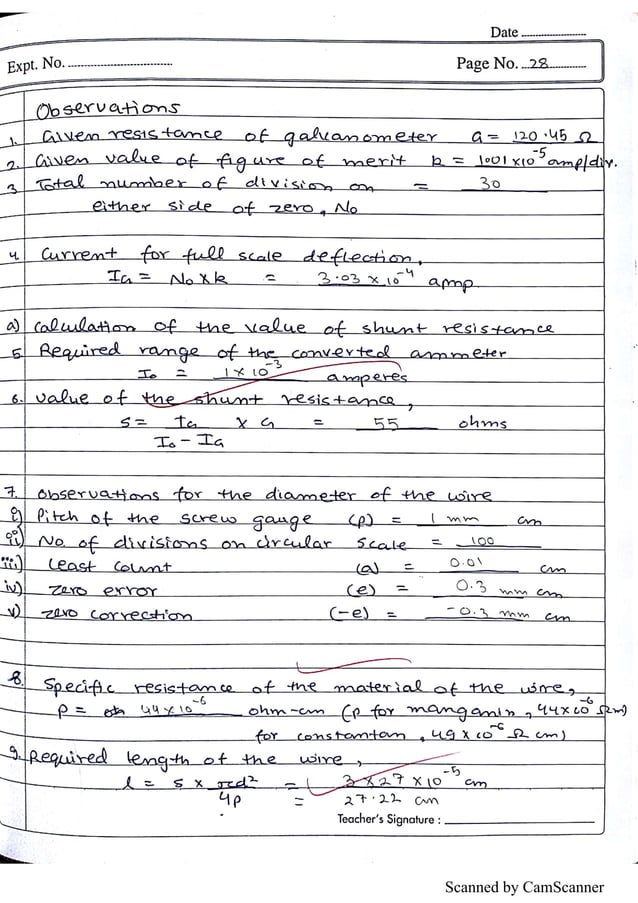 Date
Expt. No.
Page No. 28
Observations
1. Given resistance of galvanometer G = 120.45 Ω
2. Given value of figure of merit k = 1.01 x10⁻⁵ amp/div.
3 Total number of division on = 30
either side of zero, No
4 Current for full scale deflection,
IG = No x k = 3.03 x 10⁻⁴ amp
a) Calculation of the value of shunt resistance
5 Required range of the converted ammeter
Io = 1 x 10⁻³ amperes
6. Value of the shunt resistance,
S = IG x G = 55 ohms
Io - IG
7. Observations for the diameter of the wire
i) Pitch of the screw gauge (p) = 1 mm cm
ii) No. of divisions on circular scale = 100
iii) Least count (a) = 0.01 cm
iv) zero error (e) = 0.3 mm cm
v) zero correction (-e) = -0.3 mm cm
8. Specific resistance of the material of the wire,
ρ = 44x10⁻⁶ ohm-cm (ρ for manganin, 44x10⁻⁶ Ωm)
for constantan, 49 x 10⁻⁶ Ω cm)
9. Required length of the wire,
l = S x πd² = 3 x 27 x 10⁻⁵ cm
4ρ = 27.22 cm
Teacher's Signature :
Scanned by CamScanner